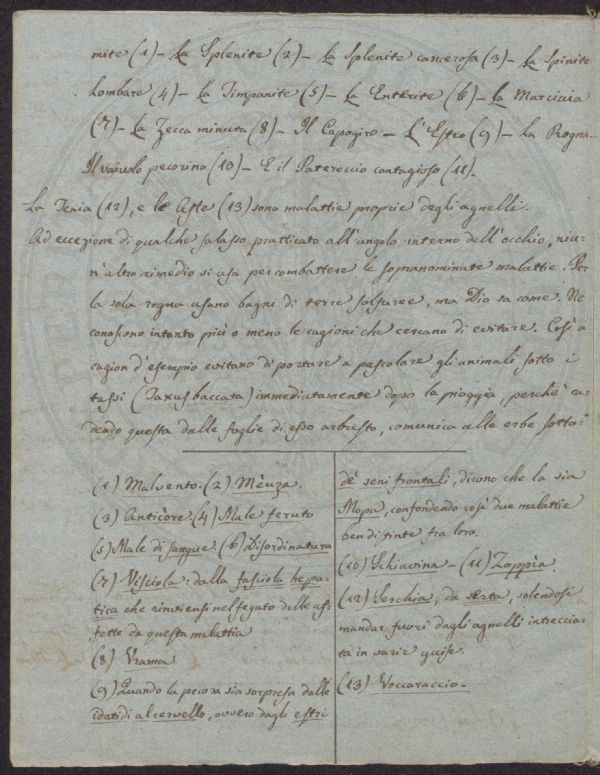 mite (1) – La Splenite (2) – La Splenite cancerosa (3) – La Spinite
Lombare (4) – La Timpanite (5) – La Enterite (6) – La Marciaia
(7) – La Zecca minuta (8) – Il Capogiro – L'Estro (9) – La Rogna –
Il vaiuolo pecorino (10) – E il Patereccio contagioso (11).
La Tenia (12), e le Afte (13) sono malattie proprie degli agnelli.
Ad eccezione di qualche salasso pratticato all'angolo interno dell'occhio, niu-
n'altro rimedio si usa per combattere le sopranominate malattie. Per
la sola rogna usano bagni di terre solfuree, ma Dio sa come. Ne
conoscono intanto più o meno le cagioni che cercano di evitare. Così a
cagion d'esempio evitano di portare a pascolare gli animali sotto i
tassi (Taxus baccata) immediatamente dopo la pioggia, perchè ca-
dendo questa dalle foglie di esso arbusto, comunica alle erbe sotto-
(1) Malvento. (2) Mèuza.
(3) Anticòre. (4) Male feruto
(5) Male di sangue. (6) Disordinatura
(7) Visciola: dalla fasciola hepa-
tica che rinviensi nel fegato delle af-
fette da questa malattia
(8) Vrama
(9) Quando la pecora sia sorpresa dalle
idatidi al cervello, ovvero dagli estri
de' seni frontali, dicono che la sia
Mopa, confondendo così due malattie
ben distinte fra loro.
(10) Schiavina – (11) Zoppìa.
(12) Serchia, da serta, solendosi
mandar fuori dagli agnelli intreccia-
ta in varie guise.
(13) Voccaraccio.